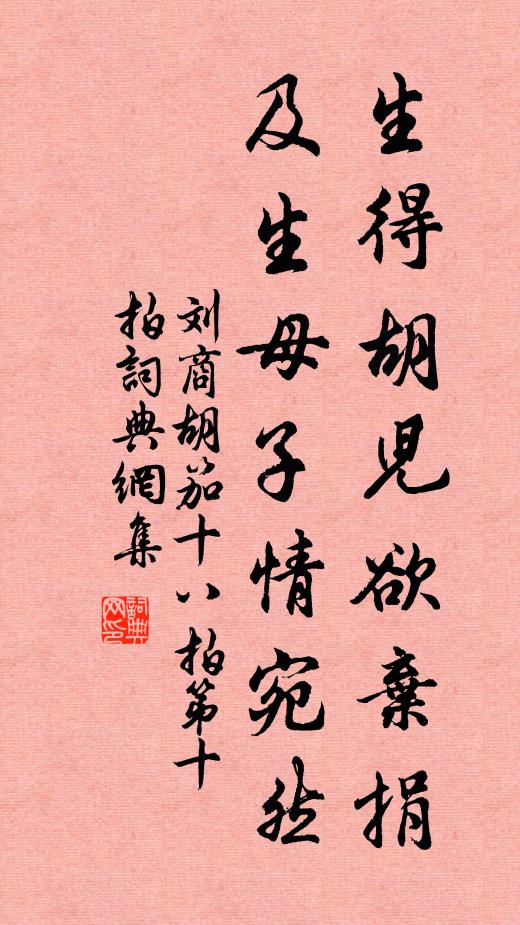 生得胡児欲棄捐
及生母子情宛然
刘商胡笳十八拍第十
拍詞典網集
詞典
网印